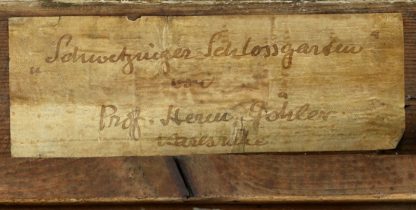 "Schwetzinger Schlossgarten"
von
Prof. Herm. Göhler
Karlsruhe